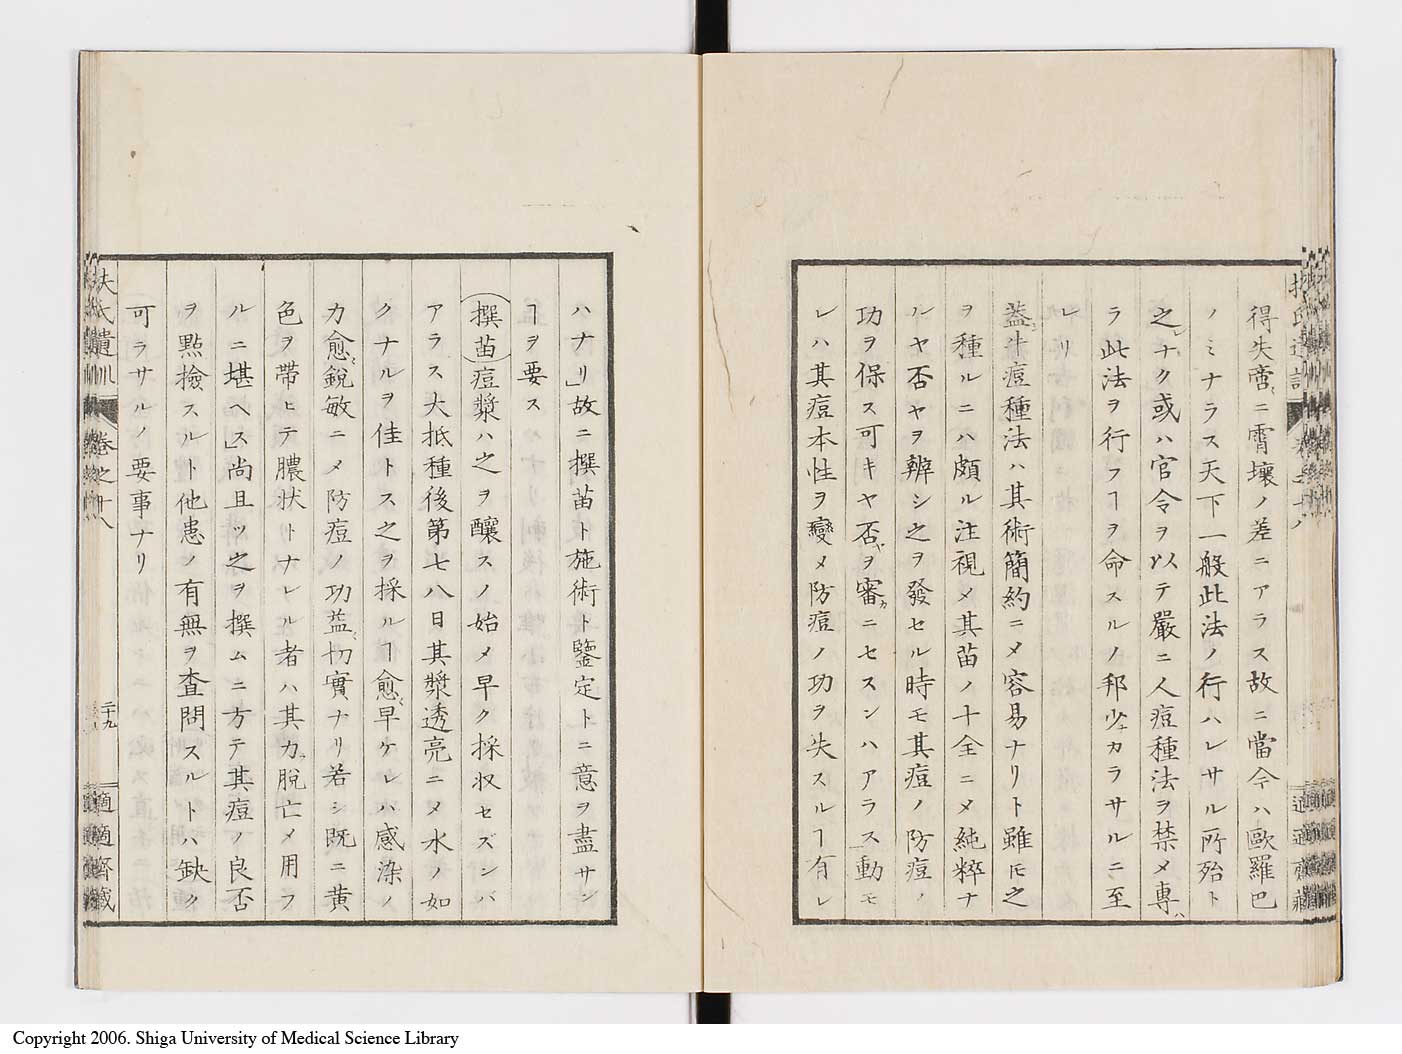 得失啻ニ霄壤ノ差ニアラス故ニ當今ハ歐羅巴
ノミナラス天下一般此法ノ行ハレサル所殆ト
之レナク或ハ官令ヲ以テ嚴ニ人痘種法ヲ禁メ專ハ
ラ此法ヲ行フヿヲ命スルノ邦少ナカラサルニ至
レリ
蓋シ牛痘種法ハ其術簡約ニメ容易ナリト雖𪜈之
ヲ種ルニハ頗ル注視メ其苗ノ十全ニメ純粹ナ
ルヤ否ヤヲ辨シ之ヲ發セル時モ其痘ノ防痘ノ
功ヲ保ス可キヤ否ヤヲ審カニセスンハアラス動モ
レハ其痘本性ヲ變メ防痘ノ功ヲ失スルヿ有レ
ハナリ」故ニ撰苗ト施術ト鑒定トニ意ヲ盡サン
ヿヲ要ス
(撰苗)痘漿ハ之ヲ釀スノ始メ早ク採収セズンバ
アラス大抵種後第七八日其漿透亮ニメ水ノ如
クナルヲ佳トス之ヲ採ルヿ愈〻早ケレハ感染ノ
力愈〻鋭敏ニメ防痘ノ功益〻切實ナリ若シ既ニ黄
色ヲ帶ヒテ膿状トナレル者ハ其力脫亡メ用フ
ルニ堪ヘス」尚且ツ之ヲ撰ムニ方テ其痘ノ良否
ヲ點撿スルト他患ノ有無ヲ査問スルトハ缺ク
可ラサルノ要事ナリ
扶氏遺訓 卷之十八
二十九
適適齋藏